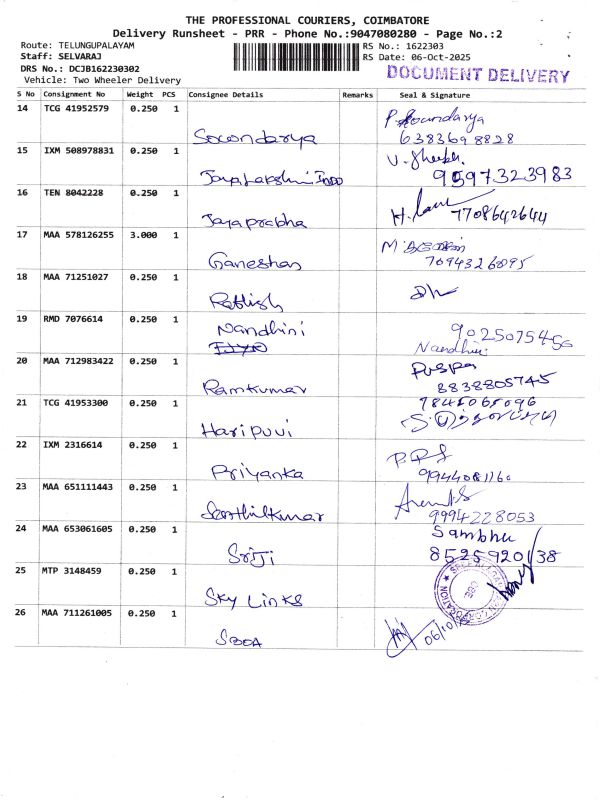 THE PROFESSIONAL COURIERS, COIMBATORE
Delivery Runsheet - PRR - Phone No.:9047080280 - Page No.:2
Route: TELUNGUPALAYAM
RS No.: 1622303
Staff: SELVARAJ
RS Date: 06-Oct-2025
DRS No.: DCJB162230302
Vehicle: Two Wheeler Delivery
DOCUMENT DELIVERY
S No Consignment No Weight PCS Consignee Details Remarks Seal & Signature
14 TCG 41952579 0.250 1
Soundarya
6383698828
15 IXM 508978831 0.250 1
Jaya Lakshmi
9597323983
16 TEN 8042228 0.250 1
Jayaprabha 7708642644
17 MAA 578126255 3.000 1
Ganeshan 7094326895
18 MAA 71251027 0.250 1
19 RMD 7076614 0.250 1
Nandhini
Nandhini
20 MAA 712983422 0.250 1
Ramkumar 8838805745
21 TCG 41953300 0.250 1
7845065096
Haripuvi
22 IXM 2316614 0.250 1
Priyanka
23 MAA 651111443 0.250 1
Senthilkumar 9994228053
24 MAA 653061605 0.250 1
Sambhu
SriJi 8525920138
25 MTP 3148459 0.250 1
SKY LINKS
26 MAA 711261005 0.250 1